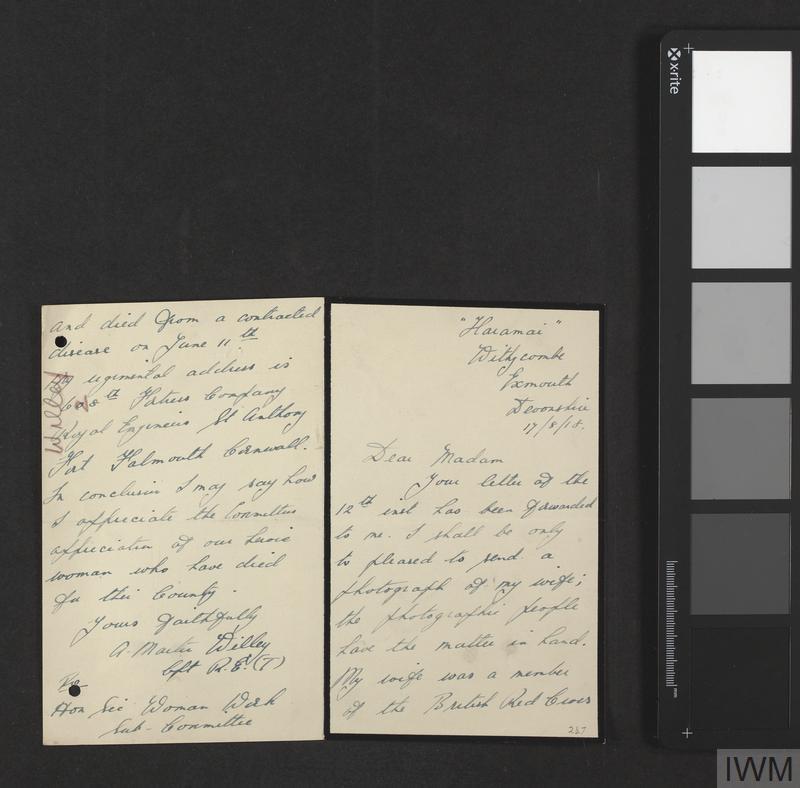 "Haramai"
Withycombe
Exmouth
Devonshire
17/8/18.
Dear Madam
Your letter of the
12th inst has been forwarded
to me. I shall be only
to pleased to send a
photograph of my wife;
the photographic people
have the matter in hand.
My wife was a member
of the British Red Cross
287
and died from a contracted
disease on June 11th
My regimental address is
Co. 8th Fatigue Company
Royal Engineers St Anthony
Fort Falmouth Cornwall.
In conclusion I may say how
I appreciate the Committees
appreciation of our heroic
woman who have died
for their Country.
Yours faithfully
A. Martin Willey
Cpt R.E. (T)
Hon Sec Woman Work
Sub-Committee
Willey
x·rite
mm
IWM